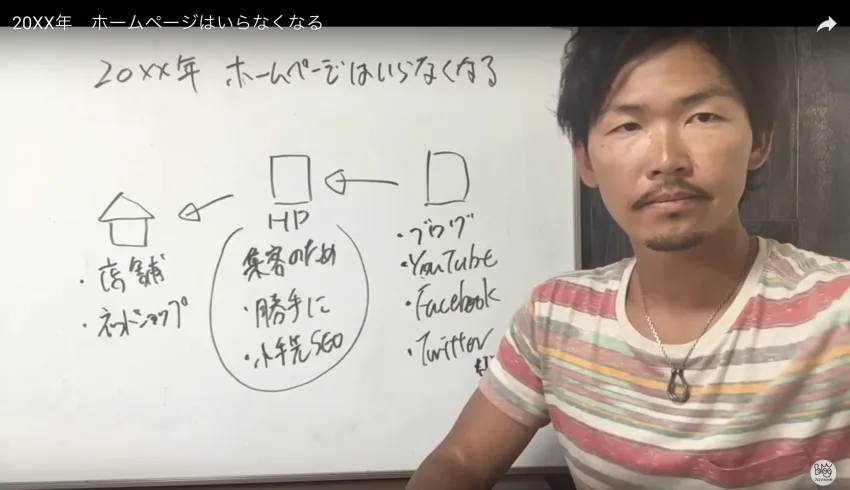 20XX年 ホームページはいらなくなる
20XX年 ホームページはいらなくなる
HP
・ブログ
・YouTube
・Facebook
・Twitter
集客のため
・勝手に
・小手先SEO
・店舗
・ネットショップ
Blog